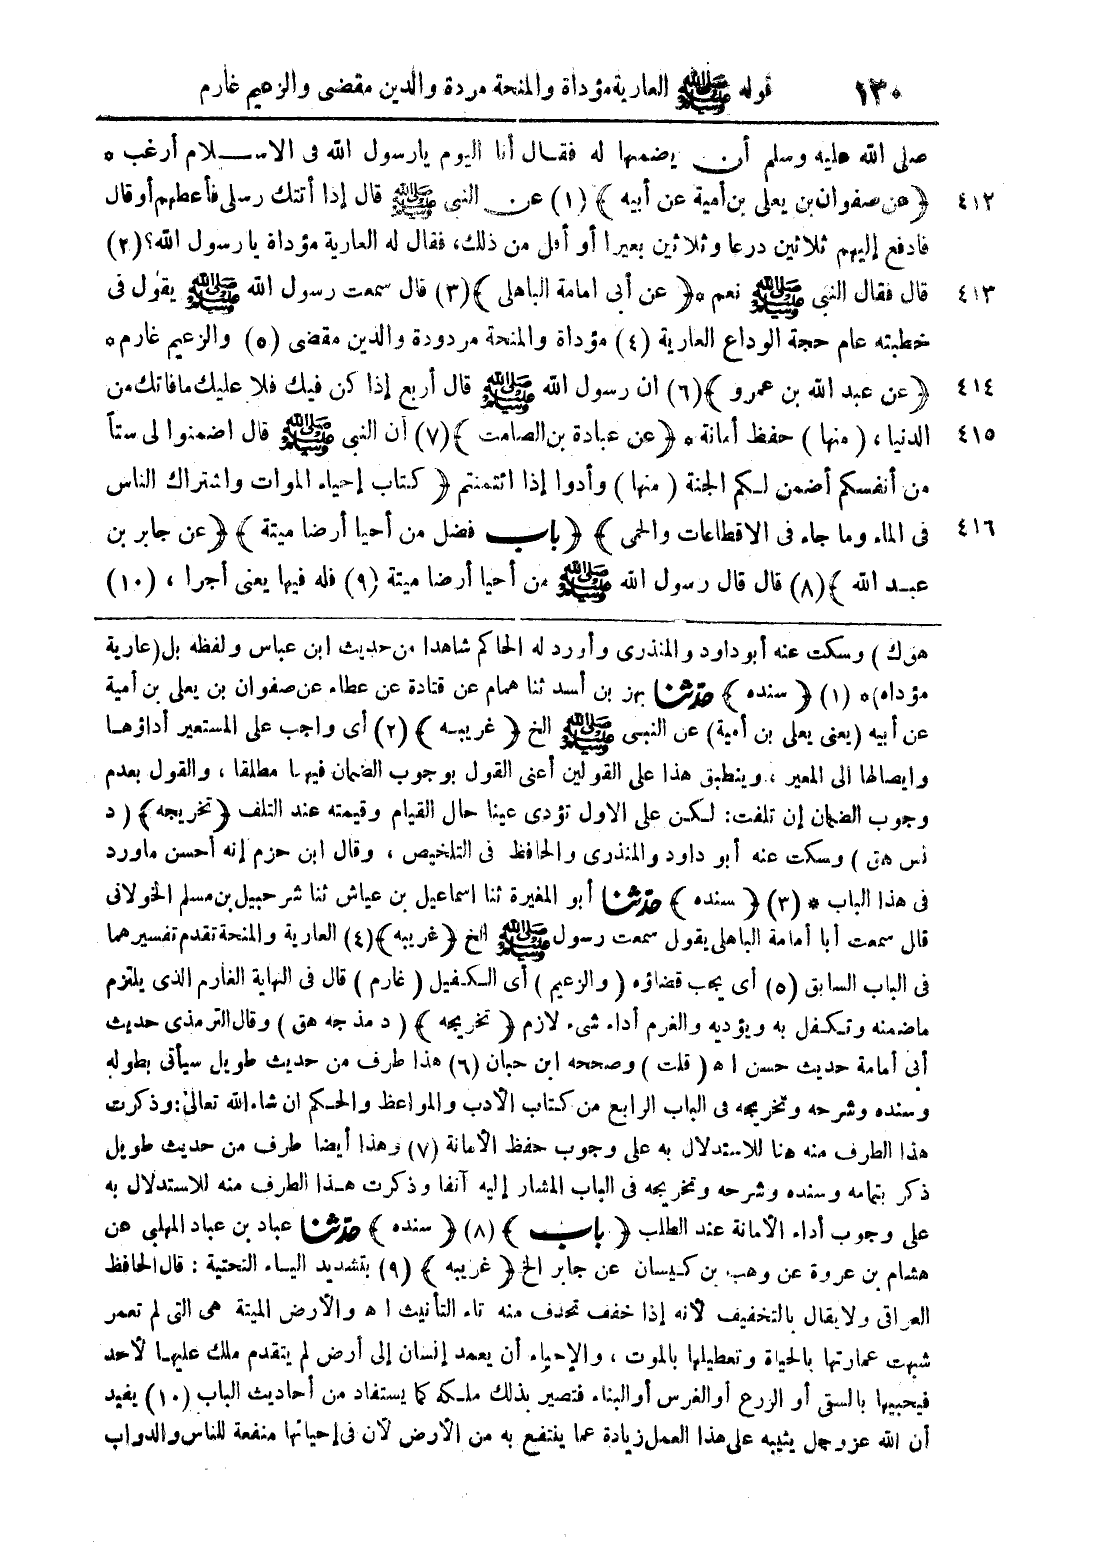 ١٣٠ قوله ﷺ العارية مؤداة والمنحة مردة والدين مقضى والزعيم غارم
صلى الله عليه وسلم أن يضمنها له فقال أنا اليوم يارسول الله فى الاسلام أرغب *
٤١٢ ﴿ عن صفوان بن يعلى بن أمية عن أبيه ﴾ (١) عن النبى ﷺ قال إذا أتتك رسلى فأعطهم أو قال
فادفع إليهم ثلاثين درعا وثلاثين بعيرا أو أقل من ذلك، فقال له العارية مؤداة يا رسول الله؟ (٢)
٤١٣ قال فقال النبى ﷺ نعم * ﴿ عن أبى امامة الباهلى ﴾ (٣) قال سمعت رسول الله ﷺ يقول فى
خطبته عام حجة الوداع العارية (٤) مؤداة والمنحة مردودة والدين مقضى (٥) والزعيم غارم *
٤١٤ ﴿ عن عبد الله بن عمرو ﴾ (٦) ان رسول الله ﷺ قال أربع إذا كن فيك فلا عليك مافاتك من
٤١٥ الدنيا ، ( منها ) حفظ أمانة * ﴿ عن عبادة بن الصامت ﴾ (٧) أن النبى ﷺ قال اضمنوا لى ستاً
من أنفسكم أضمن لكم الجنة ( منها ) وأدوا إذا ائتمنتم ﴿ كتاب إحياء الموات واشتراك الناس
٤١٦ فى الماء وما جاء فى الاقطاعات والحمى ﴾ ﴿ باب فضل من أحيا أرضا ميتة ﴾ ﴿ عن جابر بن
عبد الله ﴾ (٨) قال قال رسول الله ﷺ من أحيا أرضا ميتة (٩) فله فيها يعنى أجرا ، (١٠)
هوك ) وسكت عنه أبو داود والمنذرى وأورد له الحاكم شاهدا من حديث ابن عباس ولفظه بل (عارية
مؤداه) * (١) ﴿ سنده ﴾ حدّثنا بهز بن أسد ثنا همام عن قتادة عن عطاء عن صفوان بن يعلى بن أمية
عن أبيه (يعنى يعلى بن أمية) عن النبى ﷺ الخ ﴿ غريبه ﴾ (٢) أى واجب على المستعير أداؤها
وايصالها الى المعير ، وينطبق هذا على القولين أعنى القول بوجوب الضمان فيها مطلقا ، والقول بعدم
وجوب الضمان إن تلفت: لكن على الاول تؤدى عينا حال القيام وقيمته عند التلف ﴿ تخريجه ﴾ ( د
نس هق ) وسكت عنه أبو داود والمنذرى والحافظ فى التلخيص ، وقال ابن حزم إنه أحسن ماورد
فى هذا الباب * (٣) ﴿ سنده ﴾ حدّثنا أبو المغيرة ثنا اسماعيل بن عياش ثنا شرحبيل بن مسلم الخولانى
قال سمعت أبا أمامة الباهلى يقول سمعت رسول ﷺ الخ ﴿ غريبه ﴾ (٤) العارية والمنحة تقدم تفسيرهما
فى الباب السابق (٥) أى يجب قضاؤه ( والزعيم ) أى الكفيل ( غارم ) قال فى النهاية الغارم الذى يلتزم
ماضمنه وتكفل به ويؤديه والغرم أداء شىء لازم ﴿ تخريجه ﴾ ( د مذ جه هق ) وقال الترمذى حديث
أبى أمامة حديث حسن ا ه ( قلت ) وصححه ابن حبان (٦) هذا طرف من حديث طويل سيأتى بطوله
وسنده وشرحه وتخريجه فى الباب الرابع من كتاب الأدب والمواعظ والحكم ان شاء الله تعالى: وذكرت
هذا الطرف منه هنا للاستدلال به على وجوب حفظ الأمانة (٧) وهذا أيضا طرف من حديث طويل
ذكر بتمامه وسنده وشرحه وتخريجه فى الباب المشار إليه آنفا وذكرت هذا الطرف منه للاستدلال به
على وجوب أداء الأمانة عند الطلب ﴿ باب ﴾ (٨) ﴿ سنده ﴾ حدّثنا عباد بن عباد المهلبى عن
هشام بن عروة عن وهب بن كيسان عن جابر الخ ﴿ غريبه ﴾ (٩) بتشديد الياء التحتية : قال الحافظ
العراقى ولا يقال بالتخفيف لأنه إذا خفف تحذف منه تاء التأنيث ا ه والأرض الميتة هى التى لم تعمر
شبهت عمارتها بالحياة وتعطيلها بالموت ، والإحياء أن يعمد إنسان إلى أرض لم يتقدم ملك عليها لأحد
فيحييها بالسقى أو الزرع أو الغرس أو البناء فتصير بذلك ملكه كما يستفاد من أحاديث الباب (١٠) يفيد
أن الله عز وجل يثيبه على هذا العمل زيادة عما ينتفع به من الأرض لأن فى إحيائها منفعة للناس والدواب